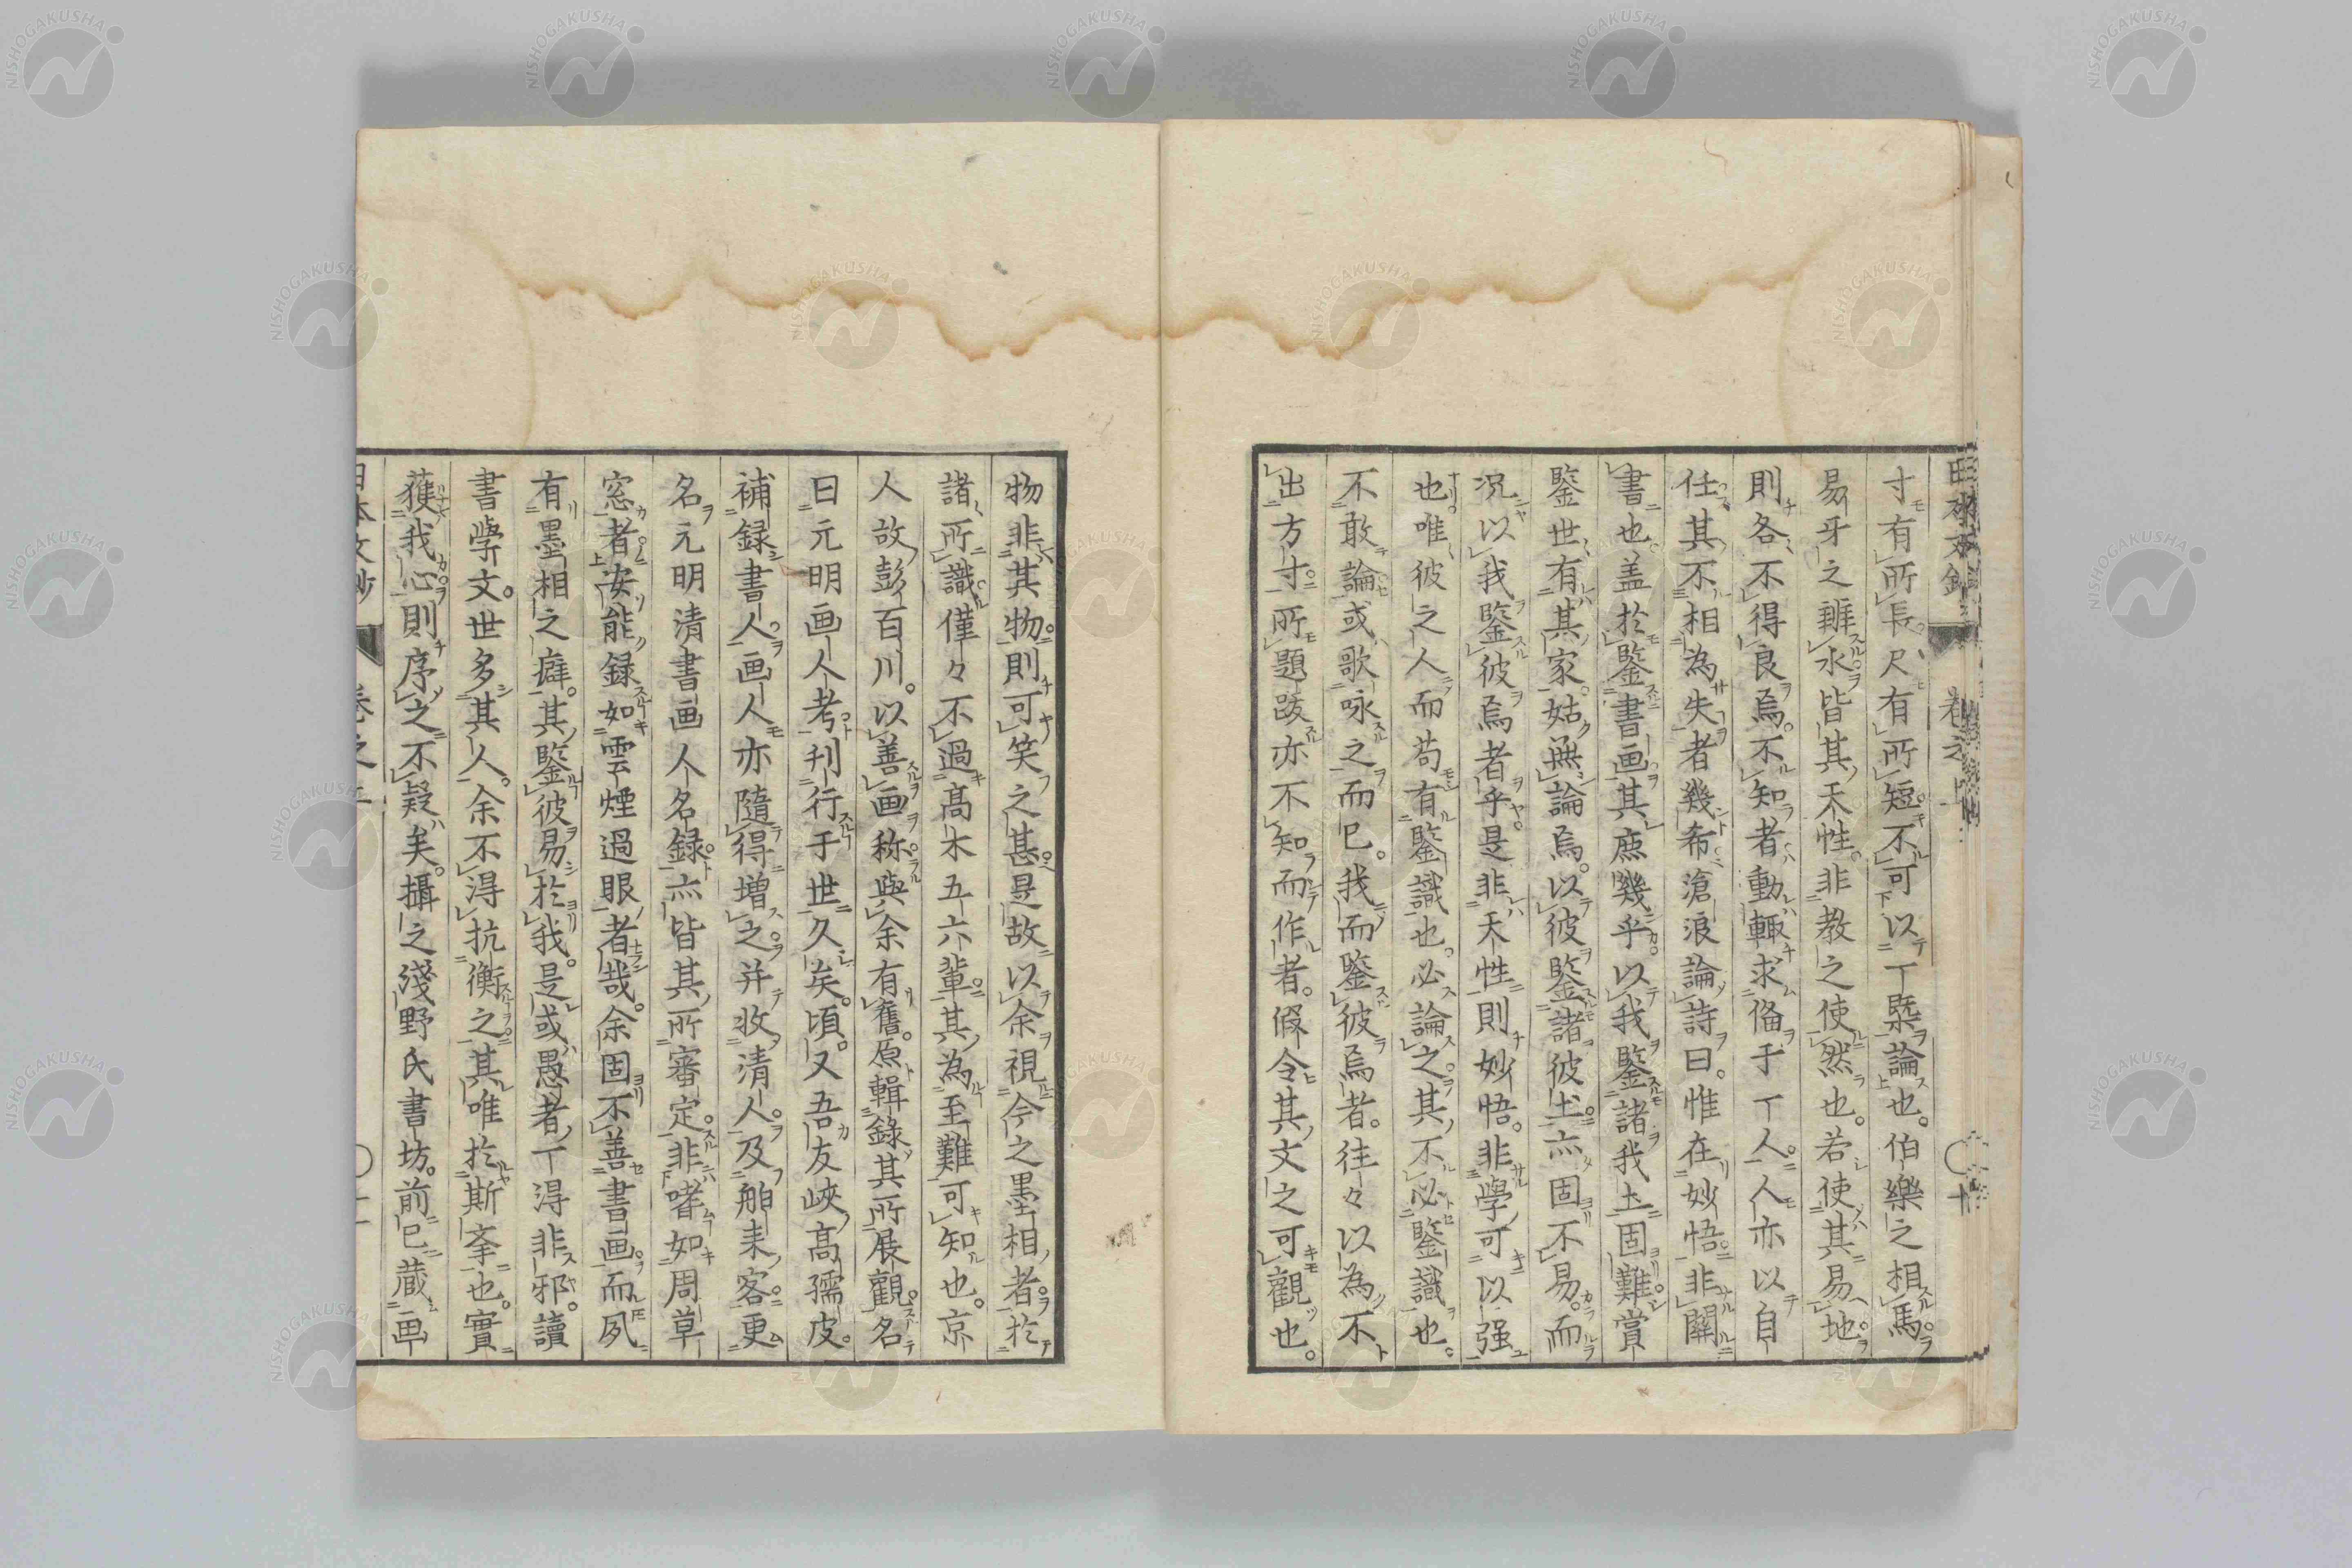 寸有所長尺有所短不可以一槩論也。伯樂之相馬
易牙之辨水皆其天性。非教之使然也。若使其易地
則各不得良焉。不知者動輙求俻于一人。人亦以自
任其不相為失者幾希滄浪論詩曰。惟在妙悟非關
書也。盖於鑒書画其庶幾乎。以我鑒諸我土固難賞
鑒世有其家姑無論焉。以彼鑒諸彼土亦固不易。而
況以我鑒彼焉者乎。是非天性則妙悟。非學可以强
也唯彼之人而苟有鑒識也。必論之其不必鑒識也。
不敢論或歌咏之而已。我而鑒彼焉者。往々以為不
出方寸所題跋亦不知而作者。假令其文之可觀也。
物非其物則可笑之甚是故以余視今之墨相者於
諸所識僅々不過髙木五六輩其為至難可知也。京
人故彭百川。以善画称與余有舊。原輯錄其所展觀名
曰元明画人考刋行于世久矣。頃又吾友峽髙孺皮。
補録書人画人亦隨得增之并收清人及舶来客更
名元明清書画人名録亦皆其所審定。非嗜如周草
窓者安能録如雲煙過眼者哉。余固不善書画而夙
有墨相之癖。其鑒彼易於我。是或愚者一得非邪。讀
書學文。世多其人。余不得抗衡之其唯於斯事也。實
獲我心則序之不疑矣。攝之淺野氏書坊。前已蔵画